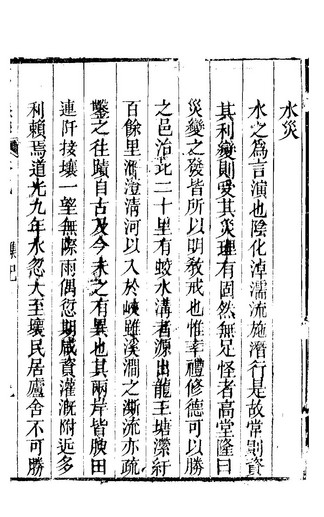 水災
水之為言演也陰化淖濡流施潛行是故常則資
其利變則受其災理有固然無足怪者高堂隆曰
災變之發皆所以明敎戒也惟率禮修德可以勝
之邑治北二十里有蛟水溝者源出龍王塘瀠紆
百餘里濟澄清河以入於峽雖溪澗之漸流亦疏
鑿之往蹟自古及今未之有異也其兩岸皆腴田
連阡接壤一望無際雨偶愆期咸資灌漑附近多
利賴焉道光九年水忽大至壤民居廬舍不可勝
雜記